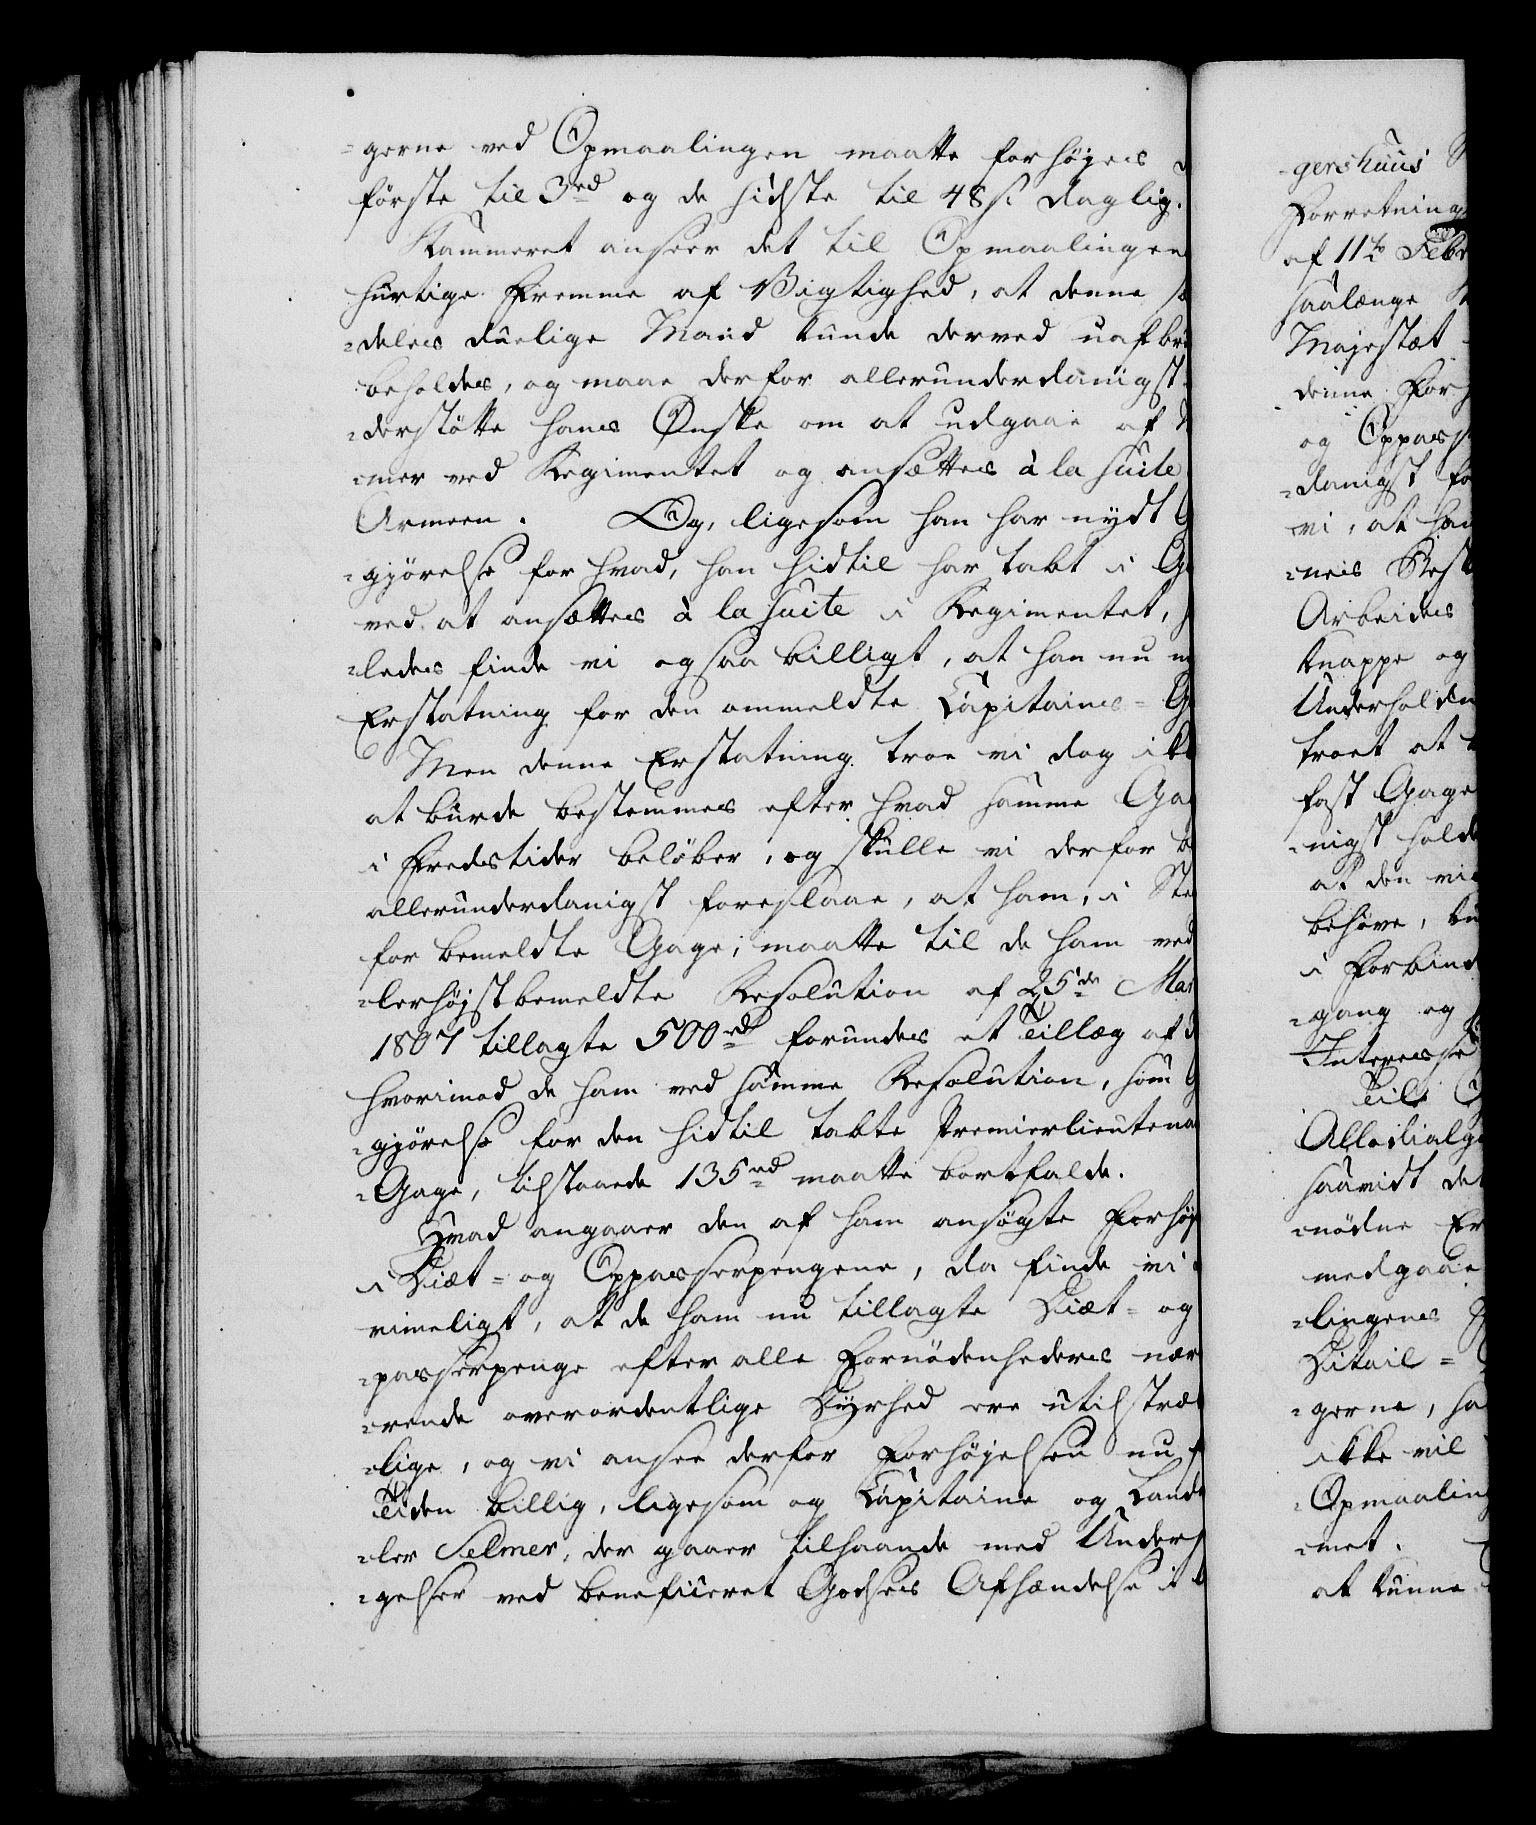 -gerne ved Opmaalingen maatte forhøjes
første til 3rd og de sidste til 48 s. daglig.
Kammeret anseer det til Opmaalingen
hurtige Fremme af Vigtighed, at denne sæ
-deles duelige Mand kunde derved uafbru
beholdes, og maae derfor allerunderdanigst
-derstøtte hans Ønske om at udgaae af
-mer ved Regimentet og ansættes à la suite
Armeen. Og, ligesom han har nydt G
-gjørelse for hvad, han hidtil har tabt i G
ved at ansættes à la suite i Regimentet,
-ledes finde vi ogsaa billigt, at han nu
Erstatning for den ommeldte Capitains-G
Men denne Erstatning troe vi dog ikk
at burde bestemmes efter hvad samme Gag
i Fredstider beløber, og skulle vi derfor
allerunderdanigst foreslaae, at ham, i Ste
for bemeldte Gage, maatte til de ham ved
-lerhøjstbemeldte Resolution af 25de Mar
1807 tillagte 500rd forundes et Tillæg af
hvorimod de ham ved samme Resolution, som
-gjørelse for den hidtil tabte Premierlieutena
-Gage, tilstaaede 135rd maatte bortfalde.
Hvad angaaer den af ham ansøgte Forhøj
i Diæt- og Oppasserpengene, da finde vi
rimeligt, at de ham nu tillagte Diæt- og
-passerpenge efter alle Fornødenheders nær
-rende overordentlige Dyrhed ere utilstræk
-lige, og vi ansee derfor Forhøjelsen nu f
Tiden billig, ligesom og Capitaine og Land
-ler Selmer, der gaaer tilhaande med Unders
-gelser ved beneficeret Godses Afhændelse i
-gershuus
Forretning
af 11te Febr
saalænge
Majestæt
denne For
og Oppass
-danigst fo
vi, at han
-nes Best
Arbeides
knappe og
Underholdn
troet at
fast Gage
-nigst holde
at den vi
behøve, ku
i Forbind
-gang og
Interesse
Til
Allodialg
saavidt det
-nødne Er
medgaae
-lingens
Detail-
-gerne, ha
ikke vil
-Opmaalin
-met.
at kunne